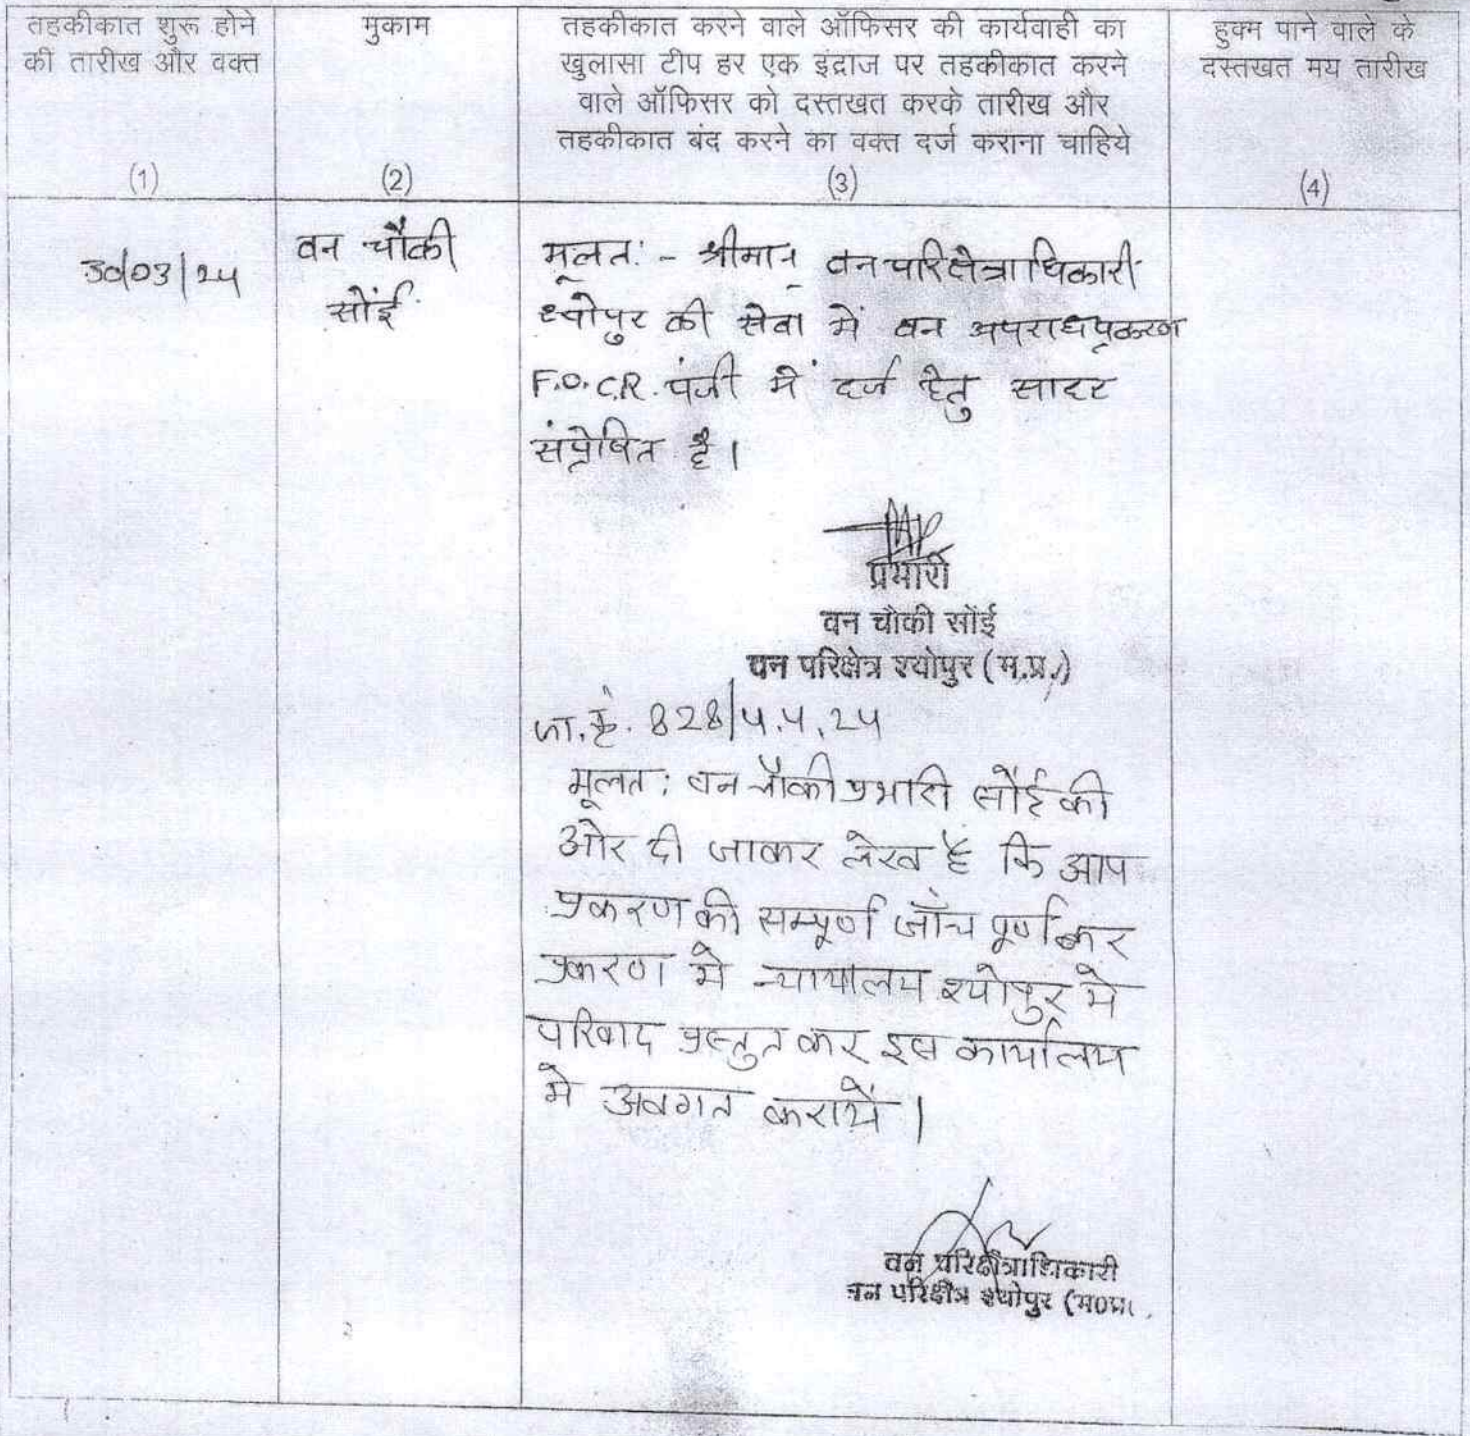 तहकीकात शुरू होने
की तारीख और वक्त
(1)
मुकाम
(2)
तहकीकात करने वाले ऑफिसर की कार्यवाही का
खुलासा टीप हर एक इंद्राज पर तहकीकात करने
वाले ऑफिसर को दस्तखत करके तारीख और
तहकीकात बंद करने का वक्त दर्ज कराना चाहिये
(3)
हुक्म पाने वाले के
दस्तखत मय तारीख
(4)
30/03/24
वन चौकी
सोंई
मूलतः - श्रीमान् वन परिक्षेत्राधिकारी
श्योपुर की सेवा में वन अपराध प्रकरण
F.O.C.R. पंजी में दर्ज हेतु सादर
संप्रेषित है।
प्रभारी
वन चौकी सोंई
वन परिक्षेत्र श्योपुर (म.प्र.)
जा.क्रं. 828/4.4.24
मूलत: वन चौकी प्रभारी सोंई की
ओर दी जाकर लेख है कि आप
प्रकरण की सम्पूर्ण जाँच पूर्ण कर
प्रकरण मे न्यायालय श्योपुर मे
परिवाद प्रस्तुत कर इस कार्यालय
मे अवगत करायें।
वन परिक्षेत्राधिकारी
वन परिक्षेत्र श्योपुर (म0प्र0